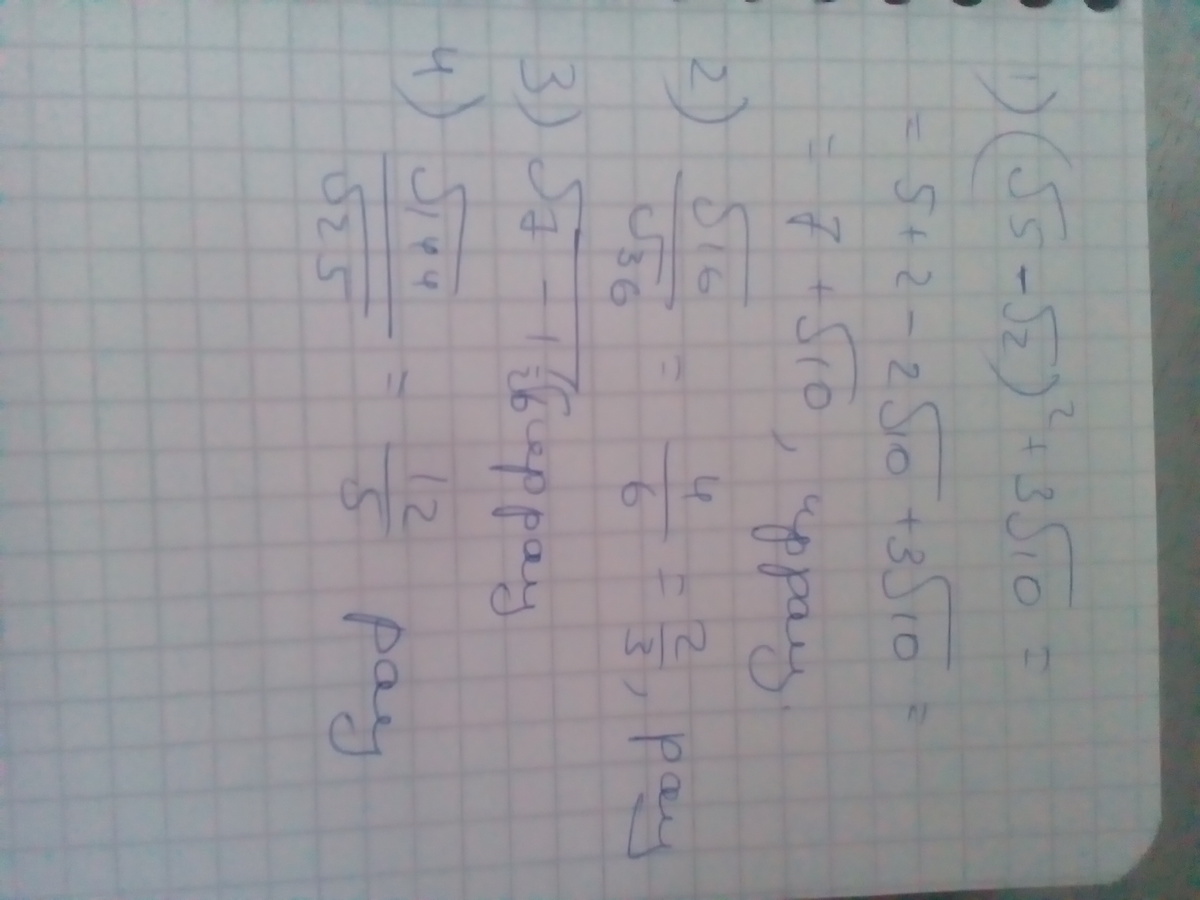 1) (√5 - √2)² + 3√10 =
= 5 + 2 - 2√10 + 3√10 =
= 7 + √10, иррац.
2) √16/√36 = 4/6 = 2/3, рац
3) √7 - 1 = √6 иррац
4) √144/√25 = 12/5 рац